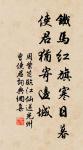 鐵馬紅旗寒日暮
使君猶寄邊城
周紫芝臨江仙送光州
曾使君詞典網書